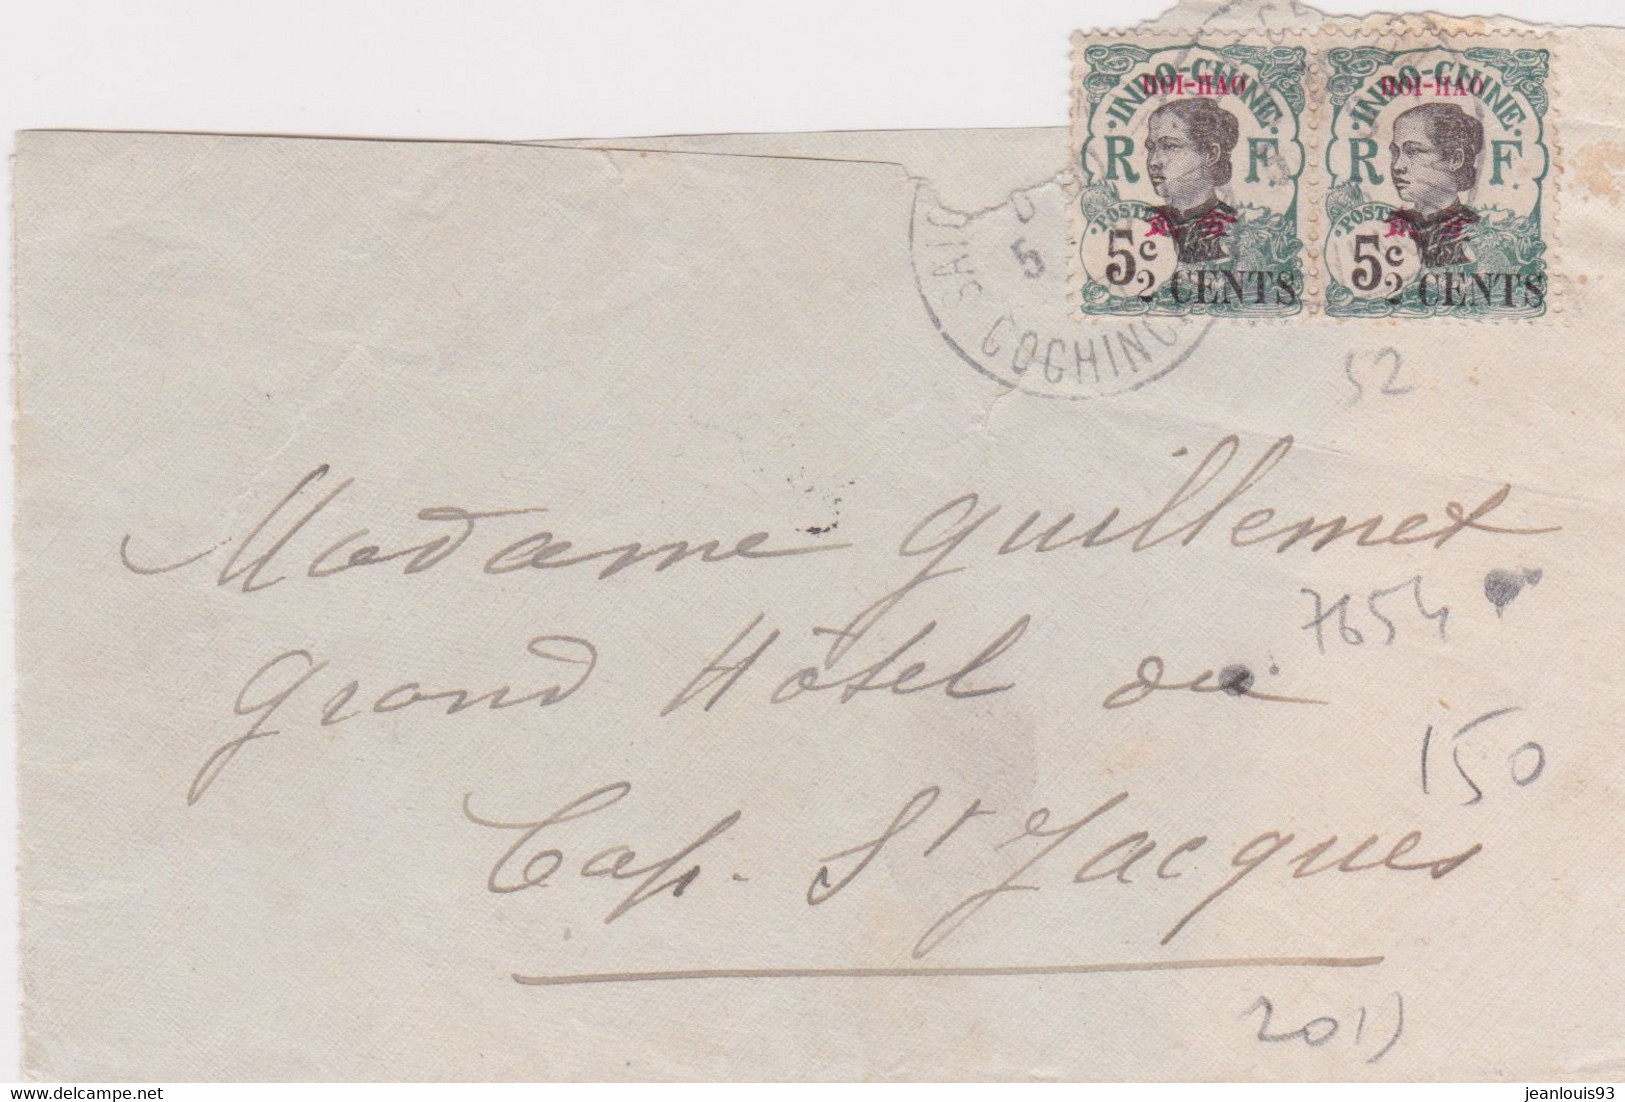 INDO-CHINE INDO-CHINE
HOI-HAO HOI-HAO
R F. R F.
POSTES POSTES
仙貳 仙貳
5c 5c
2 CENTS 2 CENTS
5
COCHINC
52
Madame Guillemet
7654
Grand Hôtel du
150
Cap. St Jacques
2011
jeanlouis93